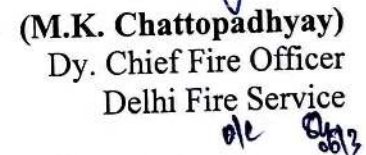 (M.K. Chattopadhyay)
Dy. Chief Fire Officer
Delhi Fire Service
o/c